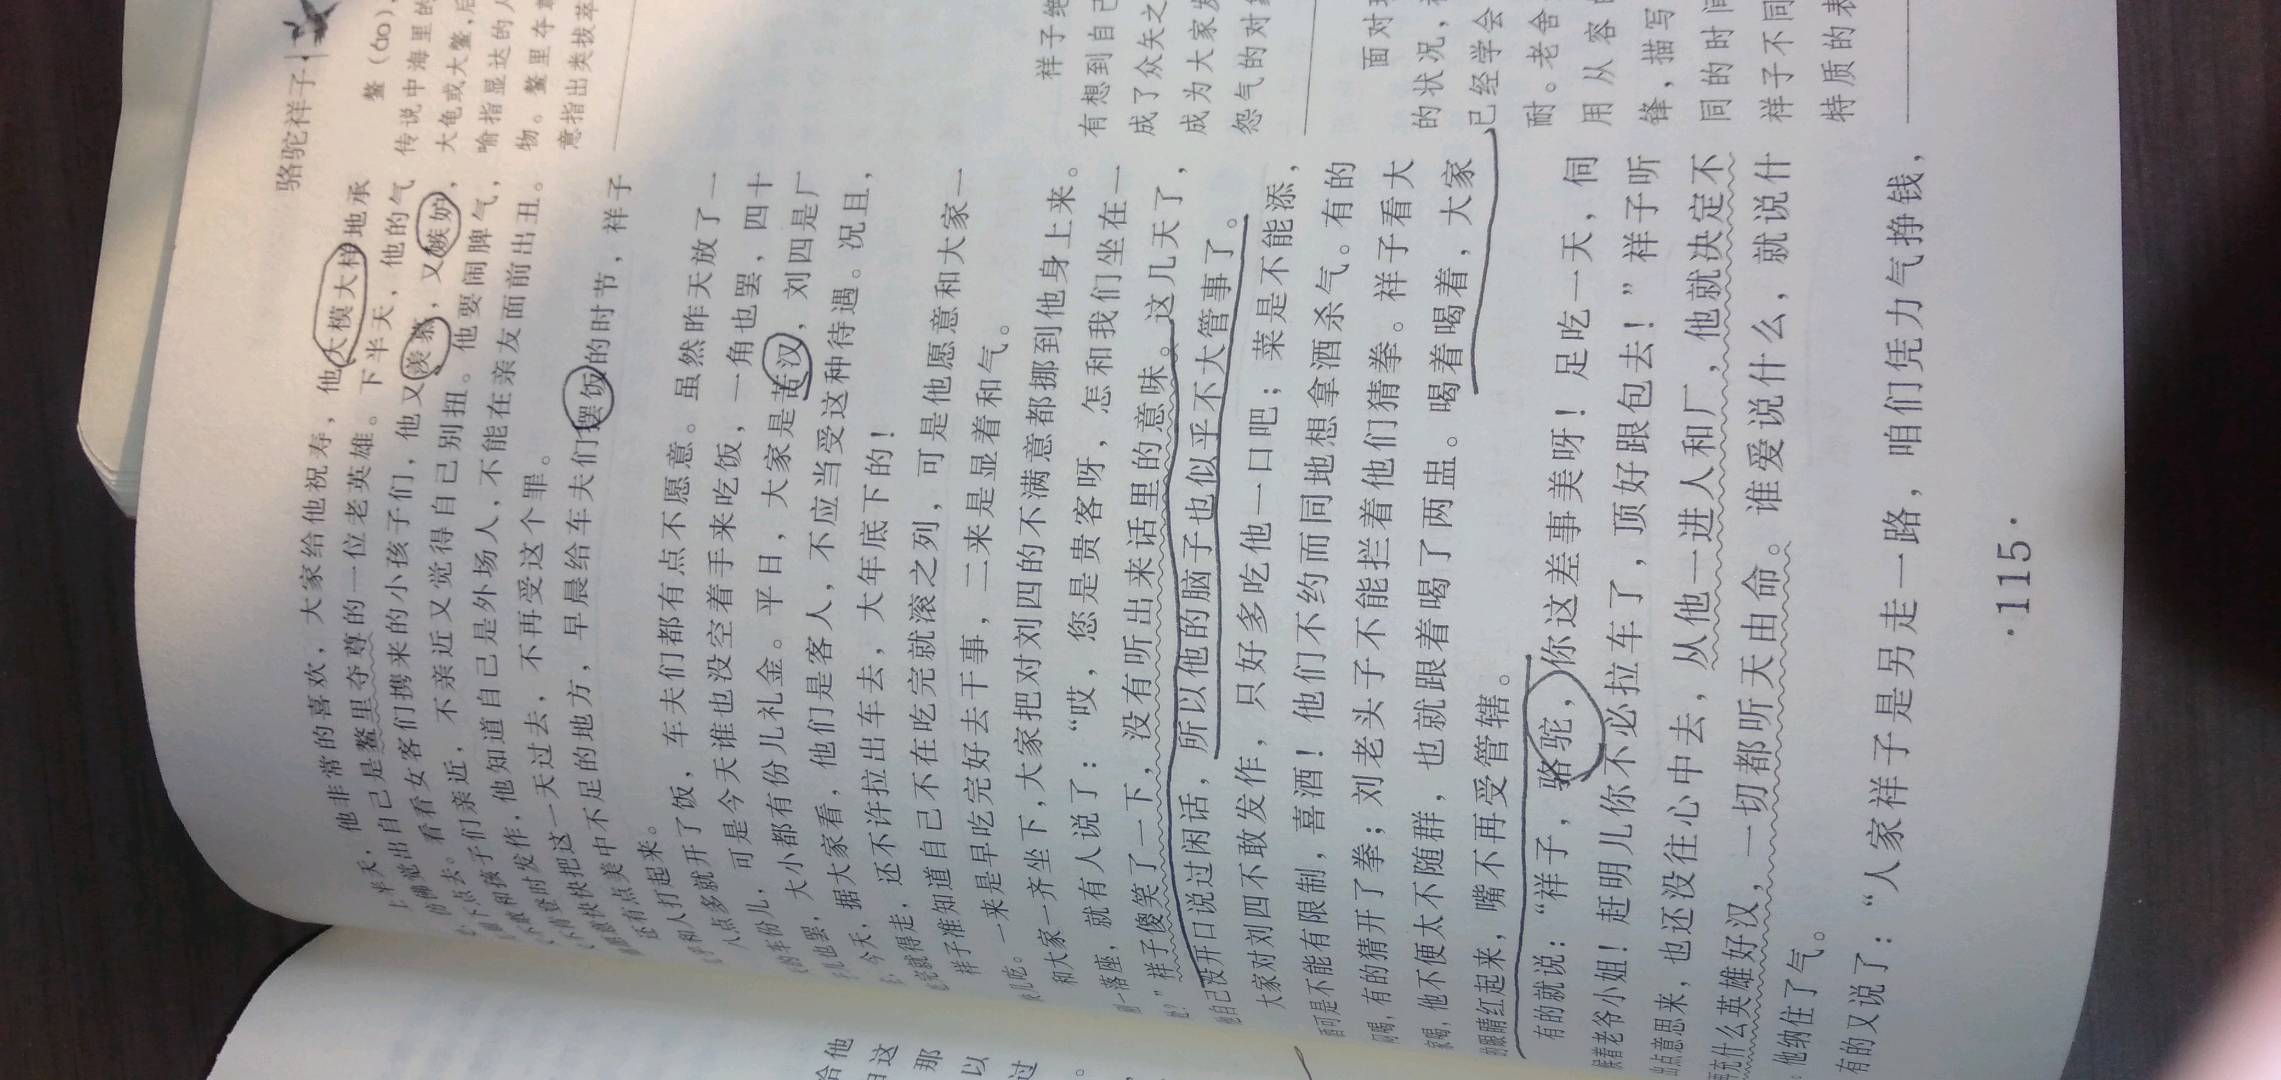 骆驼祥子
上半天，他非常的喜欢，大家给他祝寿，他大模大样地承
觉出自己是鳌里夺尊的一位老英雄。下半天，他的气
点去。看看女客们携来的小孩子们，他又羡慕，又嫉妒，
和孩子们亲近，不亲近又觉得自己别扭。他要闹脾气，
时发作，他知道自己是外场人，不能在亲友面前出丑。
快把这一天过去，不再受这个罪。
还有点美中不足的地方，早晨给车夫们摆饭的时节，祥子
和人打起来。
八点多就开了饭，车夫们都有点不愿意。虽然昨天放了一
的车份儿，可是今天谁也没空着手来吃饭，一角也罢，四十
也罢，大小都有份儿礼金。平日，大家是苦汉，刘四是厂
今天，据大家看，他们是客人，不应当受这种待遇。况且，
就得走，还不许拉出车去，大年底下的！
祥子准知道自己不在吃完就滚之列，可是他愿意和大家一
吃。一来是早吃完好去干事，二来是显着和气。
和大家一齐坐下，大家把对刘四的不满意都挪到他身上来。
一落座，就有人说了：“哎，您是贵客呀，怎和我们坐在一
”祥子傻笑了一下，没有听出来话里的意味。这几天了，
他自己没开口说过闲话，所以他的脑子也似乎不大管事了。
大家对刘四不敢发作，只好多吃他一口吧；菜是不能添，
酒可是不能有限制，喜酒！他们不约而同地想拿酒杀气。有的
闷喝，有的猜开了拳；刘老头子不能拦着他们猜拳。祥子看大
家喝，他不便太不随群，也就跟着喝了两盅。喝着喝着，大家
的眼睛红起来，嘴不再受管辖。
有的就说：“祥子，骆驼，你这差事美呀！足吃一天，伺
候着老爷小姐！赶明儿你不必拉车了，顶好跟包去！”祥子听
出点意思来，也还没往心中去，从他一进人和厂，他就决定不
再充什么英雄好汉，一切都听天由命。谁爱说什么，就说什
他纳住了气。
有的又说了：“人家祥子是另走一路，咱们凭力气挣钱，
鳌（áo），
传说中海里的
大龟或大鳖，后
喻指显达的人
物。鳌里夺尊
意指出类拔萃
祥子绝
有想到自己
成了众矢之
成为大家发
怨气的对象
面对
的状况，祥
已经学会
耐。老舍
用从容
锋，描写
同的时间
样子不同
特质的表
·115·
给他
日这
那
以
过